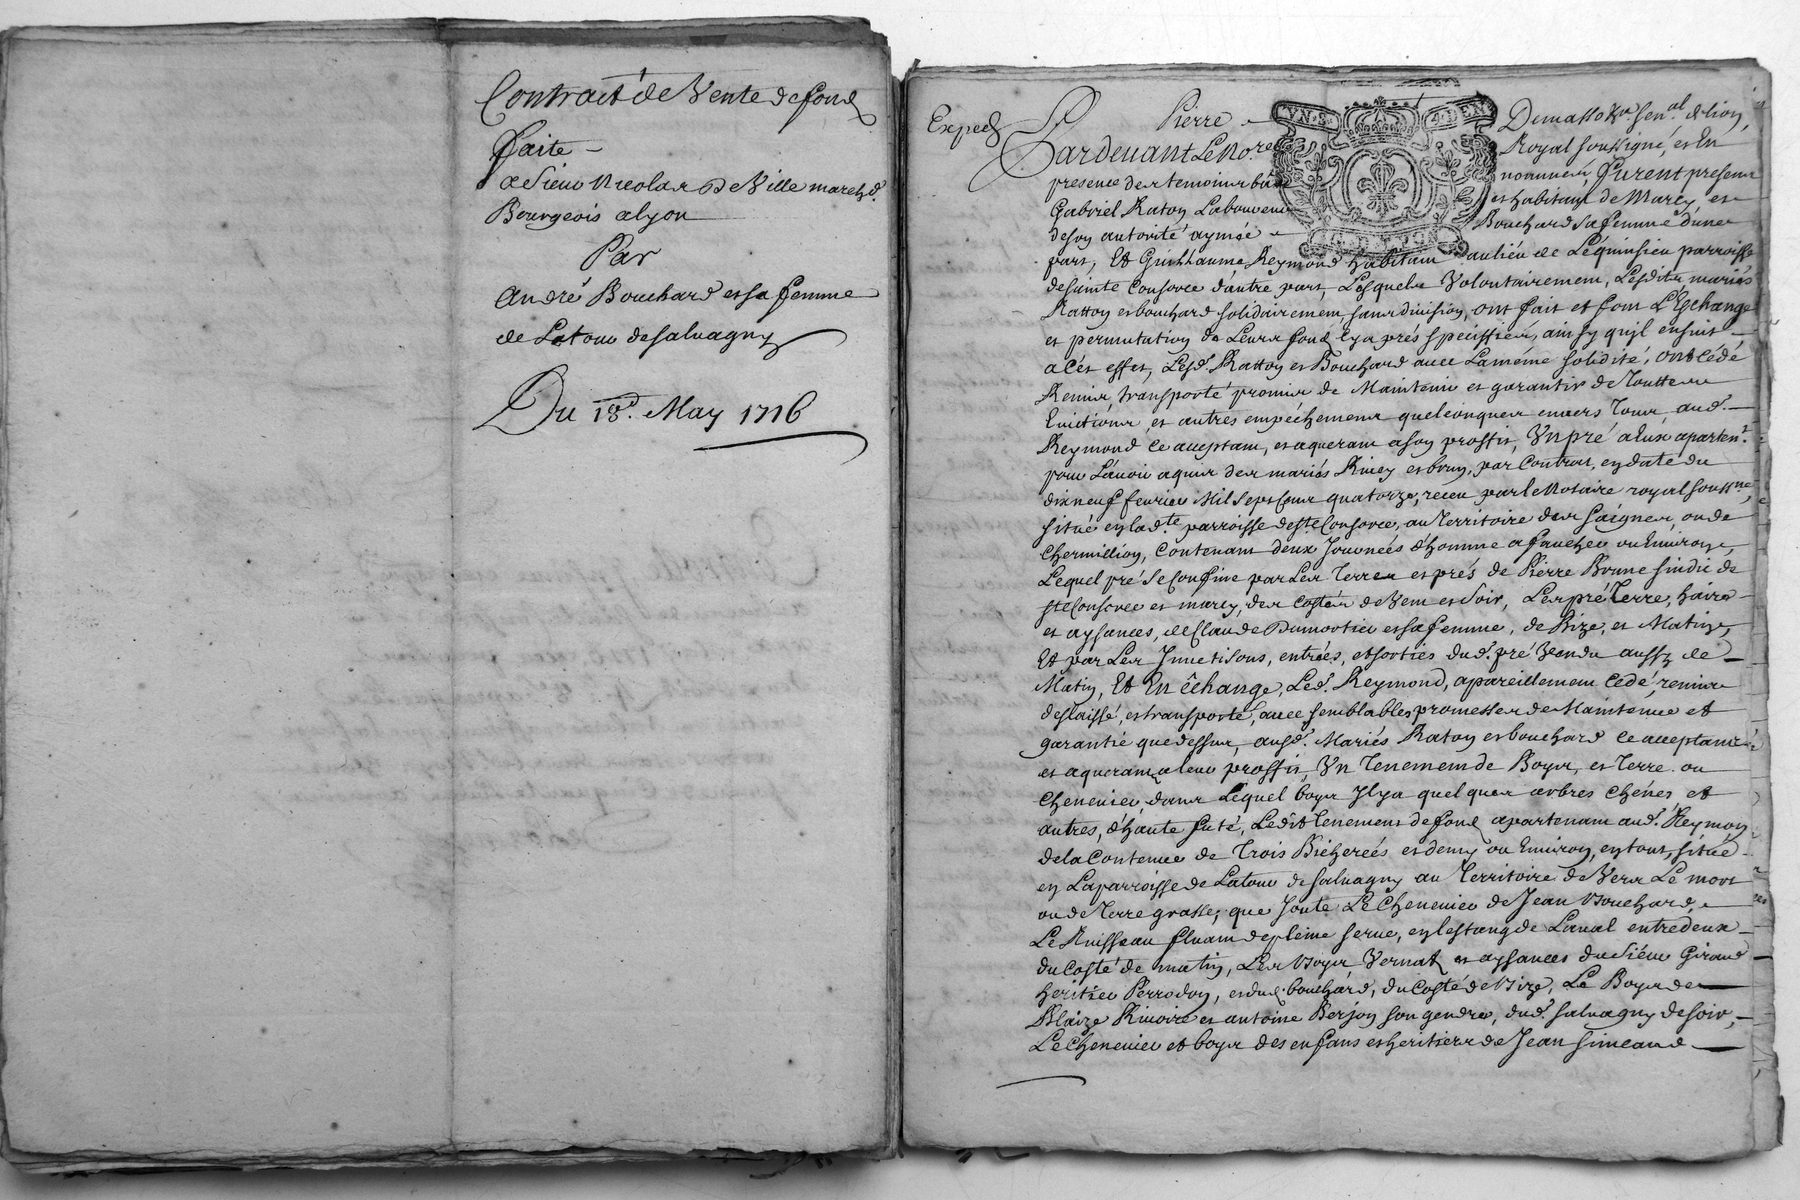 Contract de Vente de fond
faite
a Sieur Nicolas De Ville march.d
Bourgeois a lyon
Par
André Bouchard et sa femme
de Latour de salvagny
Du 18.e May 1716
Exped
Pierre Dumas No.re Sen.al de lion,
Pardevant Le No.re Royal soussigné, et En
presence des temoins bas nommés, furent presens
Gabriel Raton Laboureur et habitant de Marcy, et
de son autorité aymée Bouchard sa femme d'une
part, Et Guilhaume Reymond habitant au lieu de Léquinsieu parroisse
de sainte Consorce d'autre part, Lesquels Volontairement, Lesdits mariés
Ratton et bouchard solidairement, sans division, ont fait et font L'Eschange
et permutation de Leurs fond cy aprés speciffiés, ainsy qu'jl ensuit
a cét effet, Lesd. Ratton et Bouchard avec La méme solidité, ont cédé
Remis, transporté promis de Maintenir et garantir de Touttes
Evictions, et autres empéchemens quelconques envers Tous, aud.
Reymond ce acceptant, et aquerant a son proffit, Vn pré a Eux aparten.t
pour L'avoir aquis des mariés Rivey et brun, par Contrat, en date du
dixneuf fevrier Mil Sept Cent quatorze, receu par le Notaire royal souss.né,
situé en lad.te parroisse de s.te Consorce, au Territoire des saignes, ou de
Chermillion, Contenant deux Journées d'homme a faucher ou Environ,
Lequel pré se Confine par Les Terres et prés de Pierre Brune sindic de
s.te Consorce et marcy, des Costés de Vent et Soir, Les pré Terre, haires
et aysances, de Claude Dumortier et sa femme, de Bize, et Matin,
Et par Les Jnnetisons, entrées, et sorties dud. pré Vendu aussy de
Matin, Et En échange, Led. Reymond, a pareillement Cédé, remis
deslaissé, et transporté, avec semblables promesses de Maintenue et
garantie que dessus, ausd. Mariés Raton et bouchard ce acceptant
et aquerant a leur proffit, Vn Tenement de Boys, et Terre ou
Chenevier, dans Lequel boys Jl y a quelques arbres chenes, et
autres, d'haute futé, Ledit Tenement de fond apartenant aud. Reymon
de la Contenue de Trois Bicherées et demy ou Environ, en tout, situé
en La parroisse de Latour de salvagny au Territoire de Vers Le mort
ou de Terre grasse, que Joute Le Chenevier de Jean Bouchard,
Le Ruisseau fluant de pleine serve, en lestang de Laval entredeux
du Costé de matin, Les Boys Vernat et aysances du Siéur Giraud
heritier Perrodon, et dud. bouchard, du Costé de Bize, Le Boys de
Blaize Rivoire et antoine Berjon son gendre, dud. salvagny de soir,
Le Chenevier et boys des enfans et heritiers de Jean Simeand